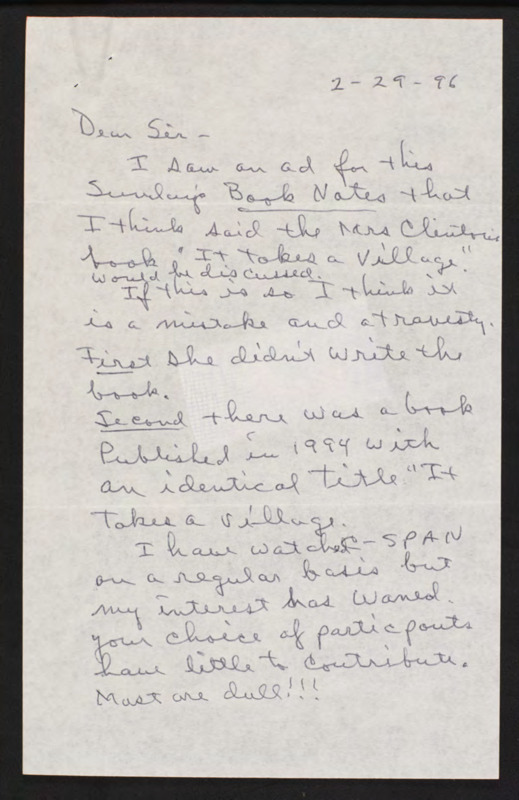 2-29-96
Dear Sir -
I saw an ad for this
Sunday's Book Notes that
I think said the Mrs Clintons
book "It takes a Village".
would be discussed.
If this is so I think it
is a mistake and a travesty.
First she didn't write the
book.
Second there was a book
Published in 1994 with
an identical title "It
Takes a Village.
I have watched C-SPAN
on a regular basis but
my interest has waned.
your choice of particpants
have little to contribute.
Most are dull!!!